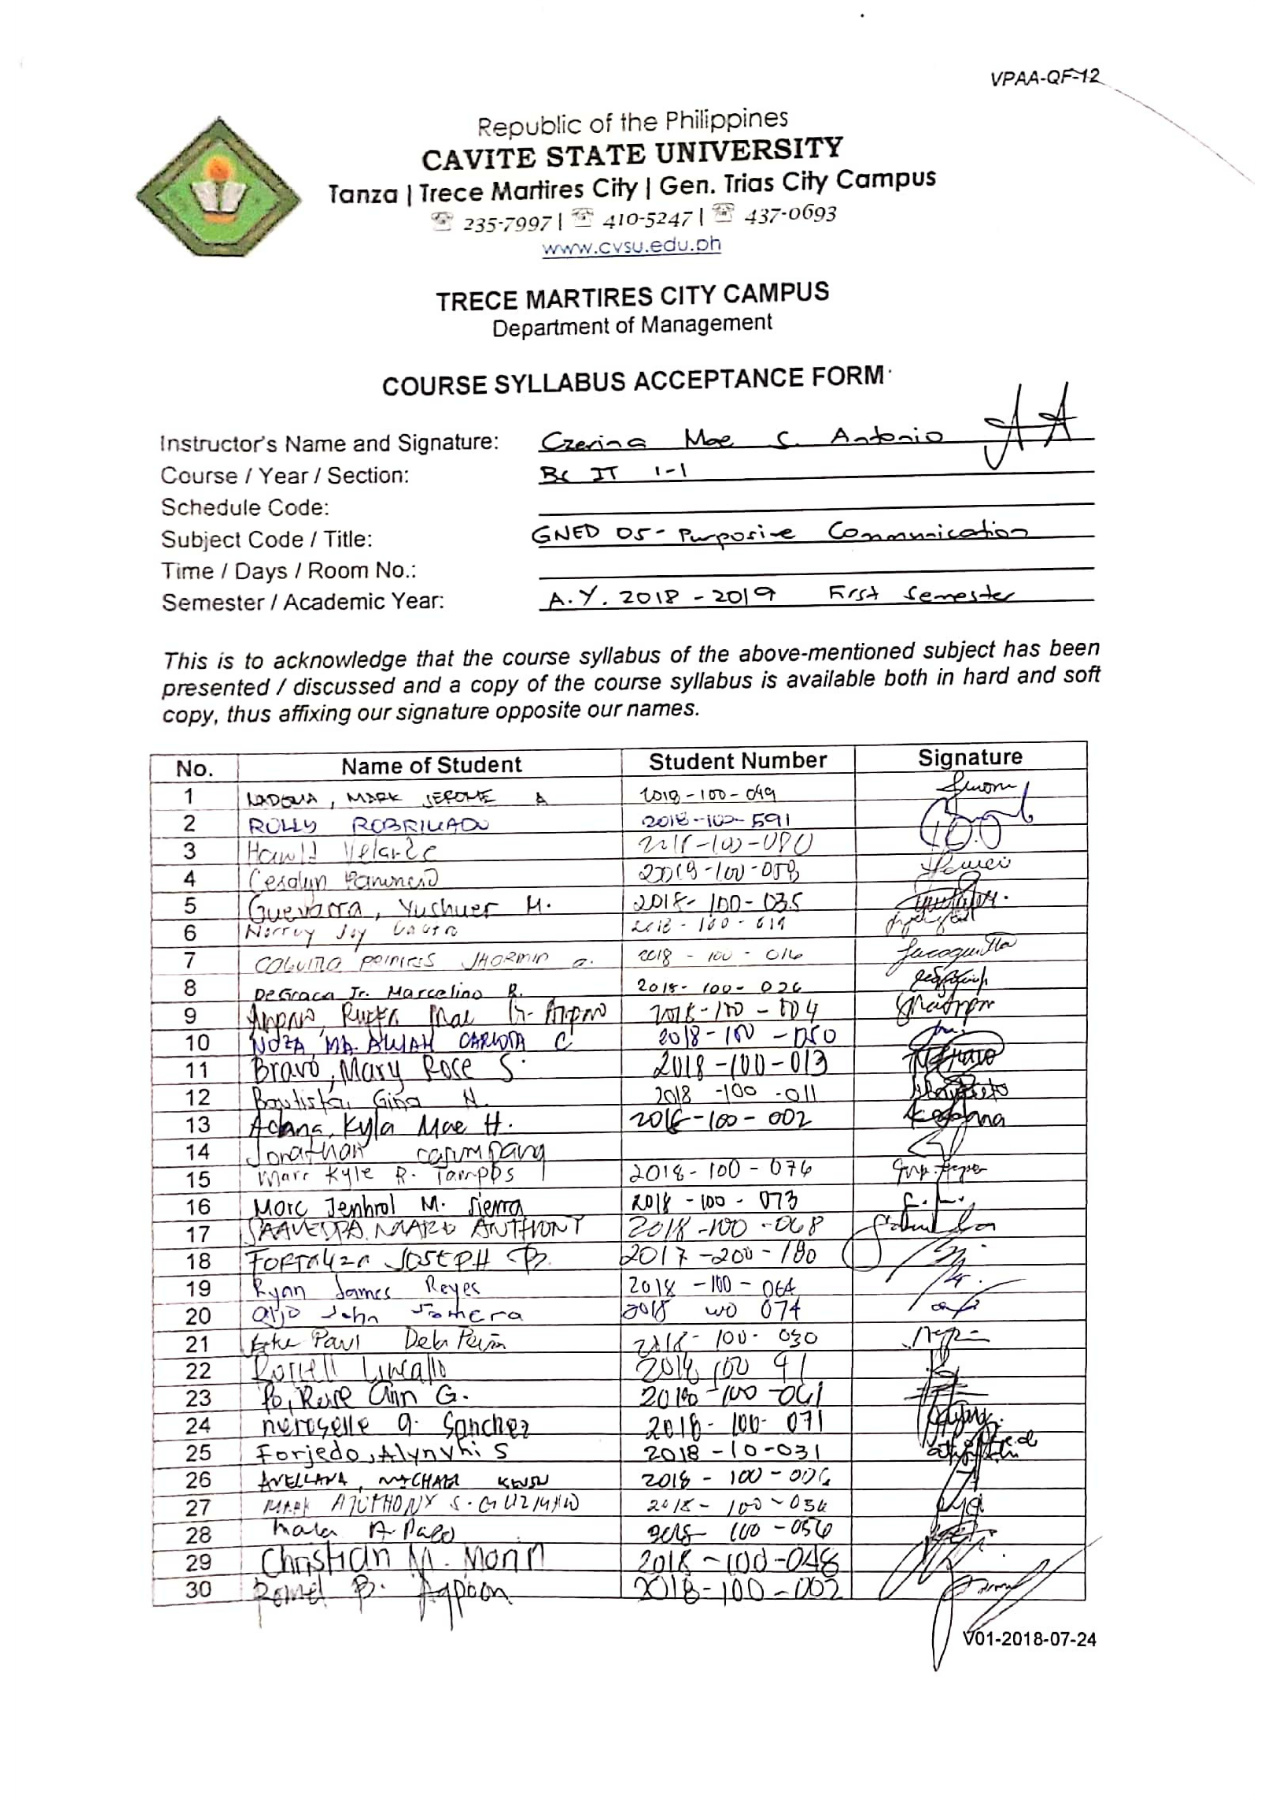 VPAA-QF-12
Republic of the Philippines
CAVITE STATE UNIVERSITY
Tanza | Trece Martires City | Gen. Trias City Campus
☏ 235-7997 | ☏ 410-5247 | ☏ 437-0693
www.cvsu.edu.ph
TRECE MARTIRES CITY CAMPUS
Department of Management
COURSE SYLLABUS ACCEPTANCE FORM
Instructor's Name and Signature: Czerina Mae S. Antonio
Course / Year / Section: BS IT 1-1
Schedule Code:
Subject Code / Title: GNED 05 - Purposive Communication
Time / Days / Room No.:
Semester / Academic Year: A.Y. 2018 - 2019 First Semester
This is to acknowledge that the course syllabus of the above-mentioned subject has been
presented / discussed and a copy of the course syllabus is available both in hard and soft
copy, thus affixing our signature opposite our names.
No. Name of Student Student Number Signature
1 MARK JEROME A 2018-100-049
2 ROLLY ROBRILLADO 2018-100-591
3 Velarde
4 Ceralyn
5 Guevarra, Yushuer M. 2018-100-035
6 Joy
7 JHORMIN 2018-100-016
8 DeGraca Jr. Marcelino R. 2018-100-026
9 Mae 2018-100-004
10 NOZA, MA. CARLOTA C. 2018-100-050
11 Bravo, Mary Rose S. 2018-100-013
12 Bautista, Gina N. 2018-100-011
13 Adana, Kyla Mae H. 2018-100-002
14 Jonathan
15 Marc Kyle R. 2018-100-076
16 Marc Jenhrol M. Sierra 2018-100-073
17 SAAVEDRA, MARC ANTHONY 2018-100-068
18 FORTALIZA JOSEPH B. 2017-200-180
19 Ryan James Reyes 2018-100-064
20 John Somera 2018 074
21 Paul Dela Peña 2018-100-030
22 2018 100 91
23 Po, Rose Ann G. 2018-100-061
24 neroselle a. Sanchez 2018-100-071
25 Forjedo, Alynvhi S 2018-10-031
26 AVELLANA, 2018-100-006
27 MARK ANTHONY S. GUZMAN 2018-100-036
28 A. 2018-100-056
29 Christian M. Morin 2018-100-048
30 Romel B. 2018-100-002
V01-2018-07-24